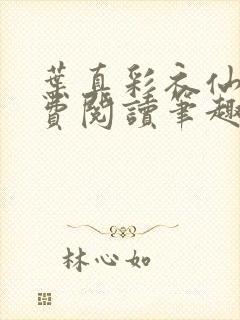 葉真彩衣仙
費閱讀筆趣
林心如